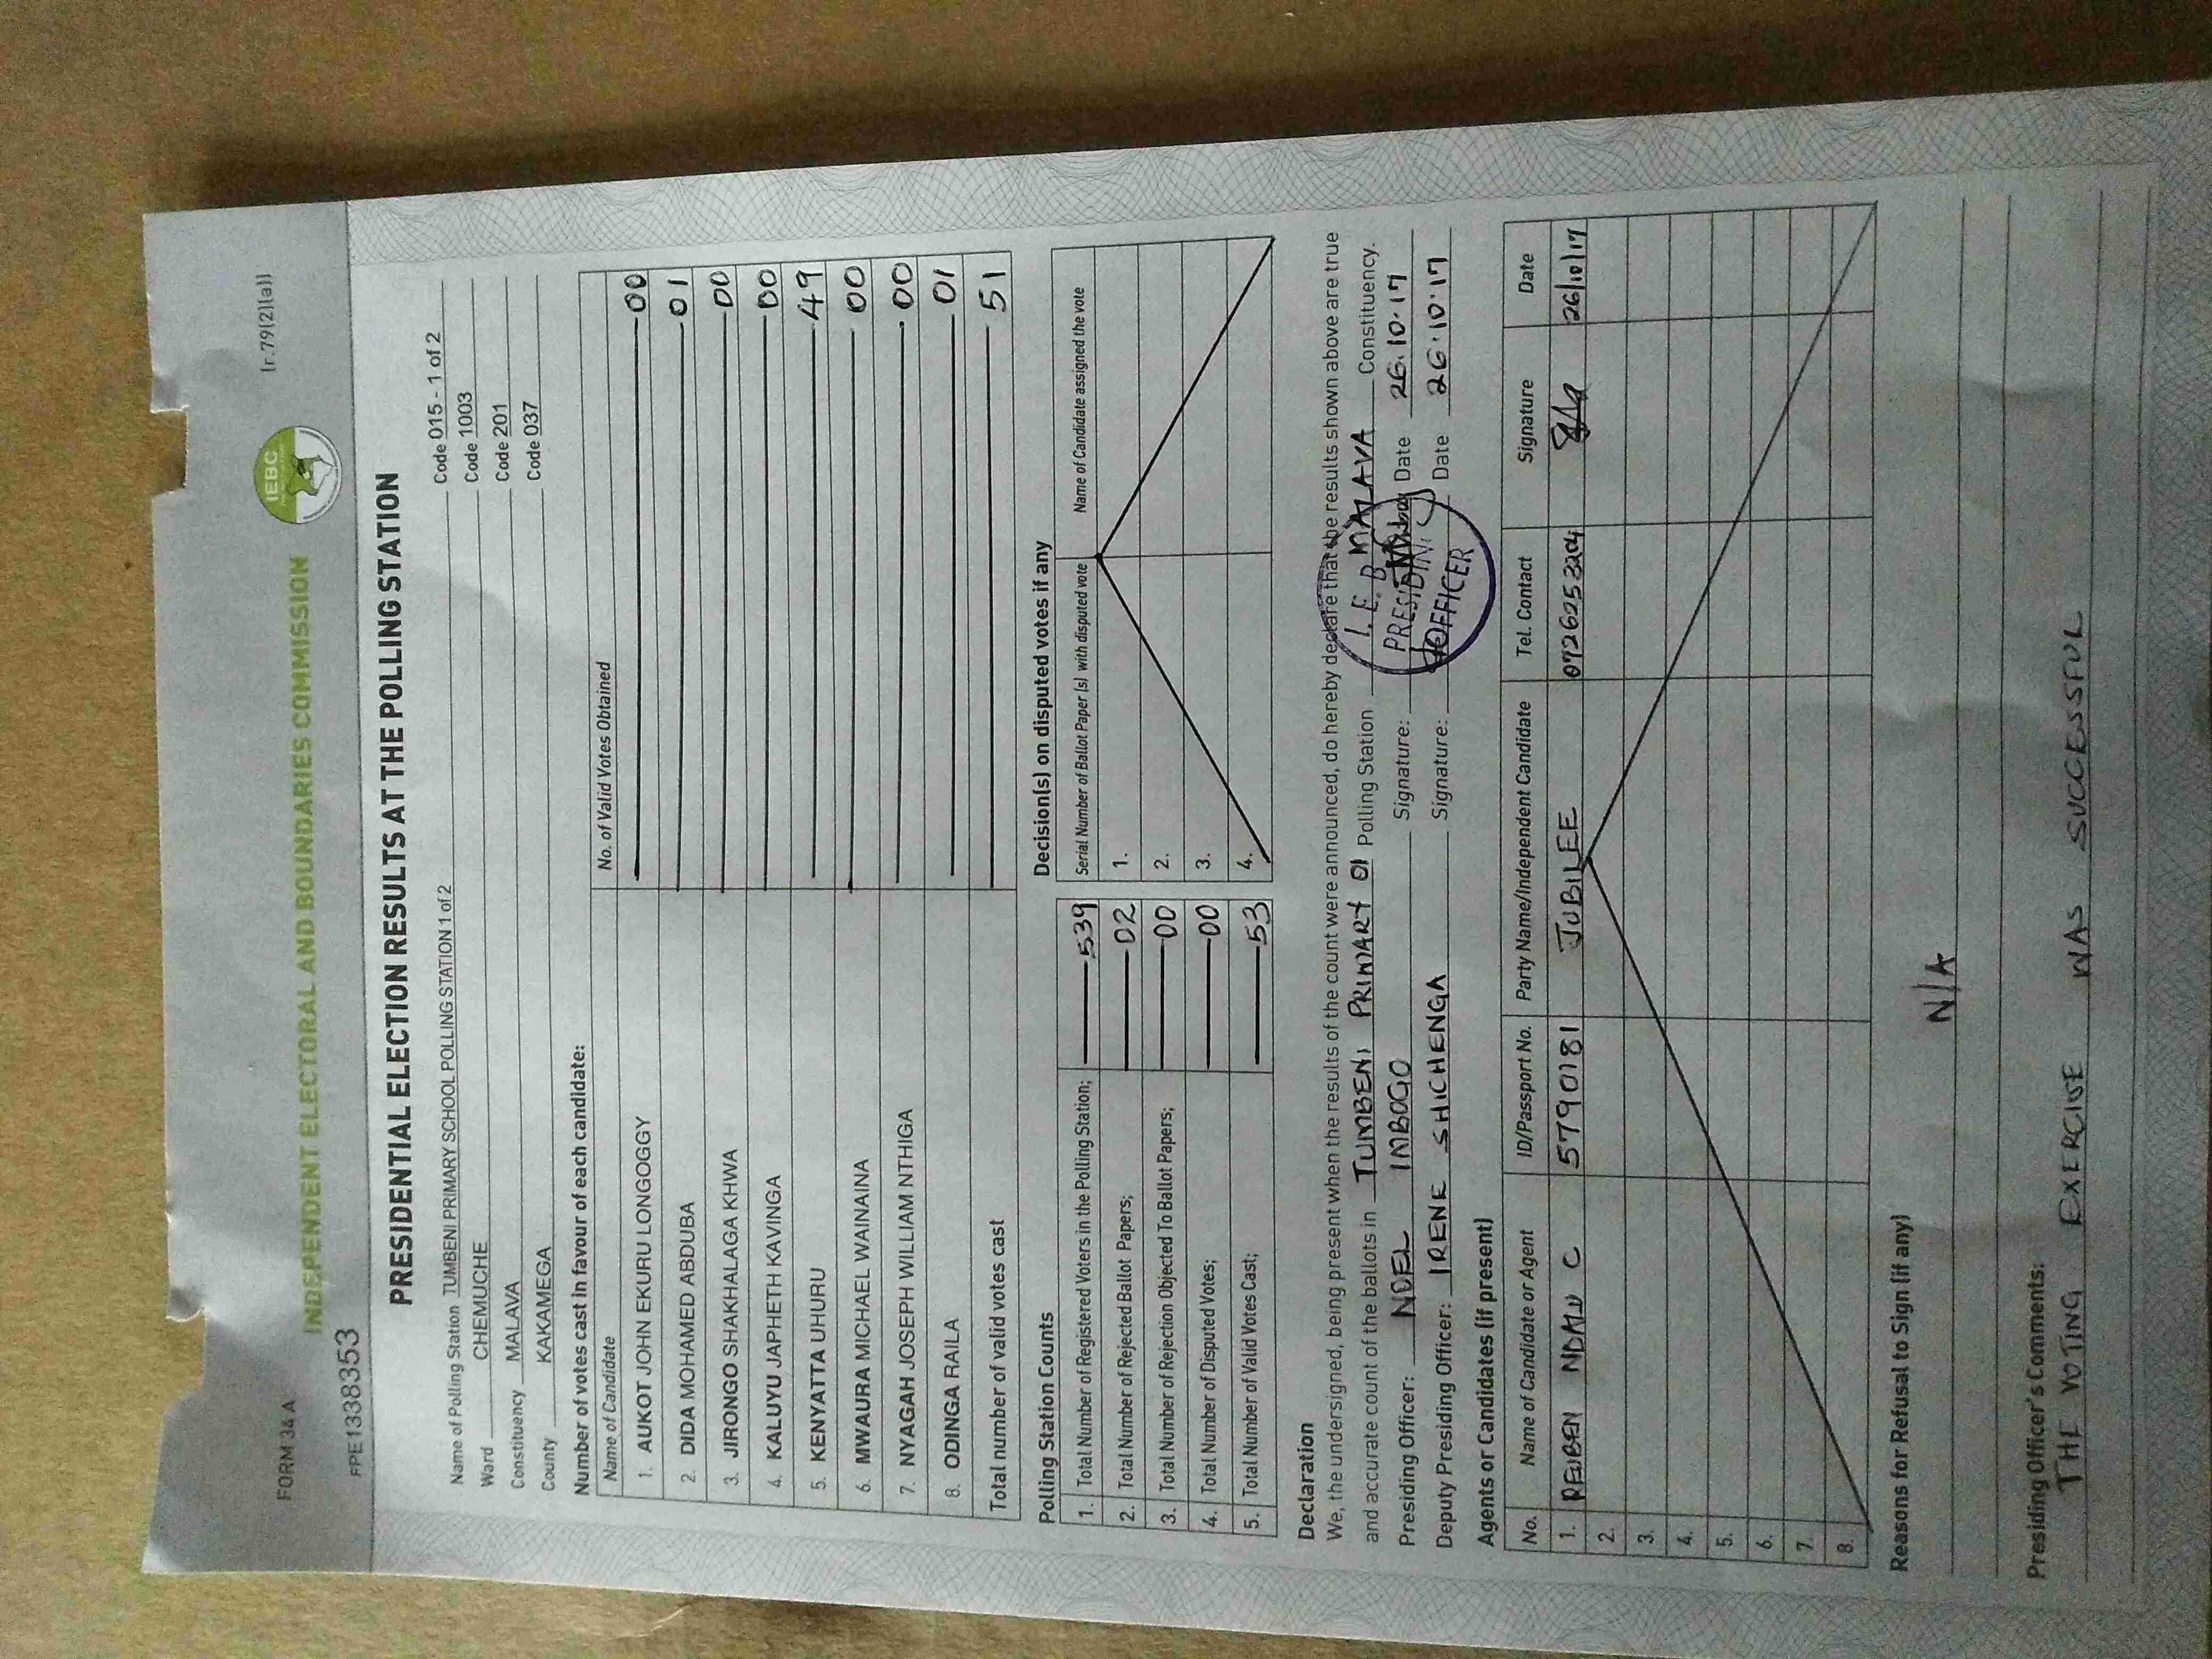 FORM 34 A
(r.79(2)(a))
IEBC
INDEPENDENT ELECTORAL AND BOUNDARIES COMMISSION
PPE1338353
PRESIDENTIAL ELECTION RESULTS AT THE POLLING STATION
Name of Polling Station TUMBENI PRIMARY SCHOOL POLLING STATION 1 of 2 Code 015 - 1 of 2
Ward CHEMUCHE Code 1003
Constituency MALAVA Code 201
County KAKAMEGA Code 037
Number of votes cast in favour of each candidate:
Name of Candidate No. of Valid Votes Obtained
1. AUKOT JOHN EKURU LONGOGGY 00
2. DIDA MOHAMED ABDUBA 01
3. JIRONGO SHAKHALAGA KHWA 00
4. KALUYU JAPHETH KAVINGA 00
5. KENYATTA UHURU 49
6. MWAURA MICHAEL WAINAINA 00
7. NYAGAH JOSEPH WILLIAM NTHIGA 00
8. ODINGA RAILA 01
Total number of valid votes cast 51
Polling Station Counts
1. Total Number of Registered Voters in the Polling Station; 539
2. Total Number of Rejected Ballot Papers; 02
3. Total Number of Rejection Objected To Ballot Papers; 00
4. Total Number of Disputed Votes; 00
5. Total Number of Valid Votes Cast; 53
Decision(s) on disputed votes if any
Serial Number of Ballot Paper (s) with disputed vote Name of Candidate assigned the vote
1.
2.
3.
4.
Declaration
We, the undersigned, being present when the results of the count were announced, do hereby declare that the results shown above are true
and accurate count of the ballots in TUMBENI PRIMARY 01 Polling Station MALAVA Constituency.
Presiding Officer: NOEL IMBOGO Signature: Date 26.10.17
Deputy Presiding Officer: IRENE SHICHENGA Signature: Date 26.10.17
I.E.B.
PRESIDING
OFFICER
Agents or Candidates (if present)
No. Name of Candidate or Agent ID/Passport No. Party Name/Independent Candidate Tel. Contact Signature Date
1. REUBEN NDALU C 5790181 JUBILEE 0726253204 26/10/17
2.
3.
4.
5.
6.
7.
8.
Reasons for Refusal to Sign (if any)
N/A
Presiding Officer's Comments:
THE VOTING EXERCISE WAS SUCCESSFUL